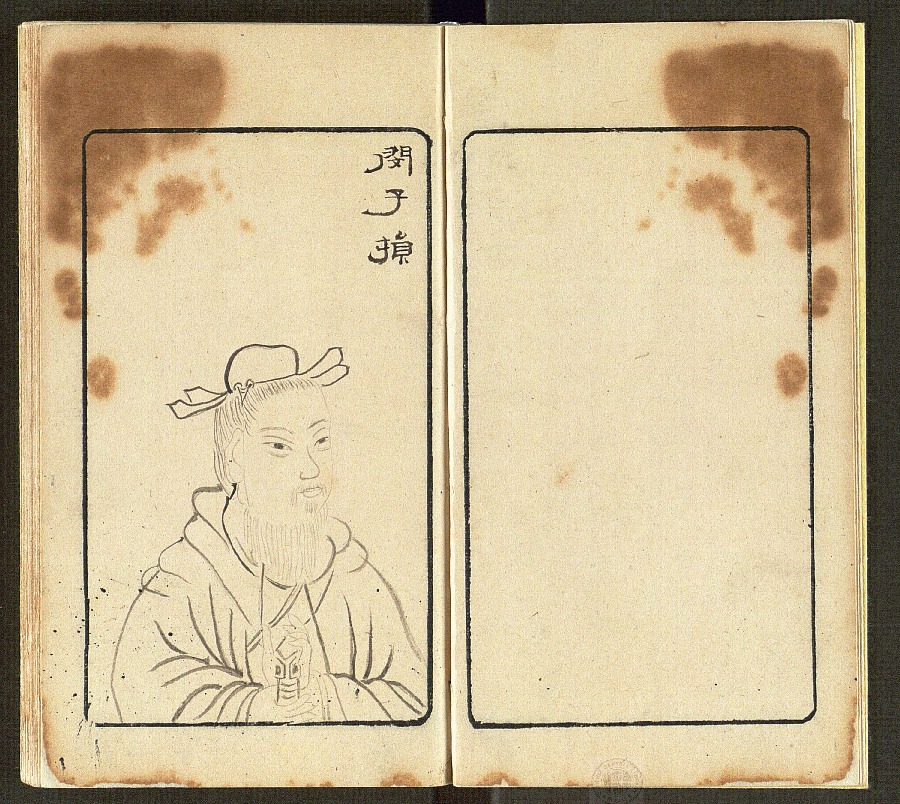 閔子損